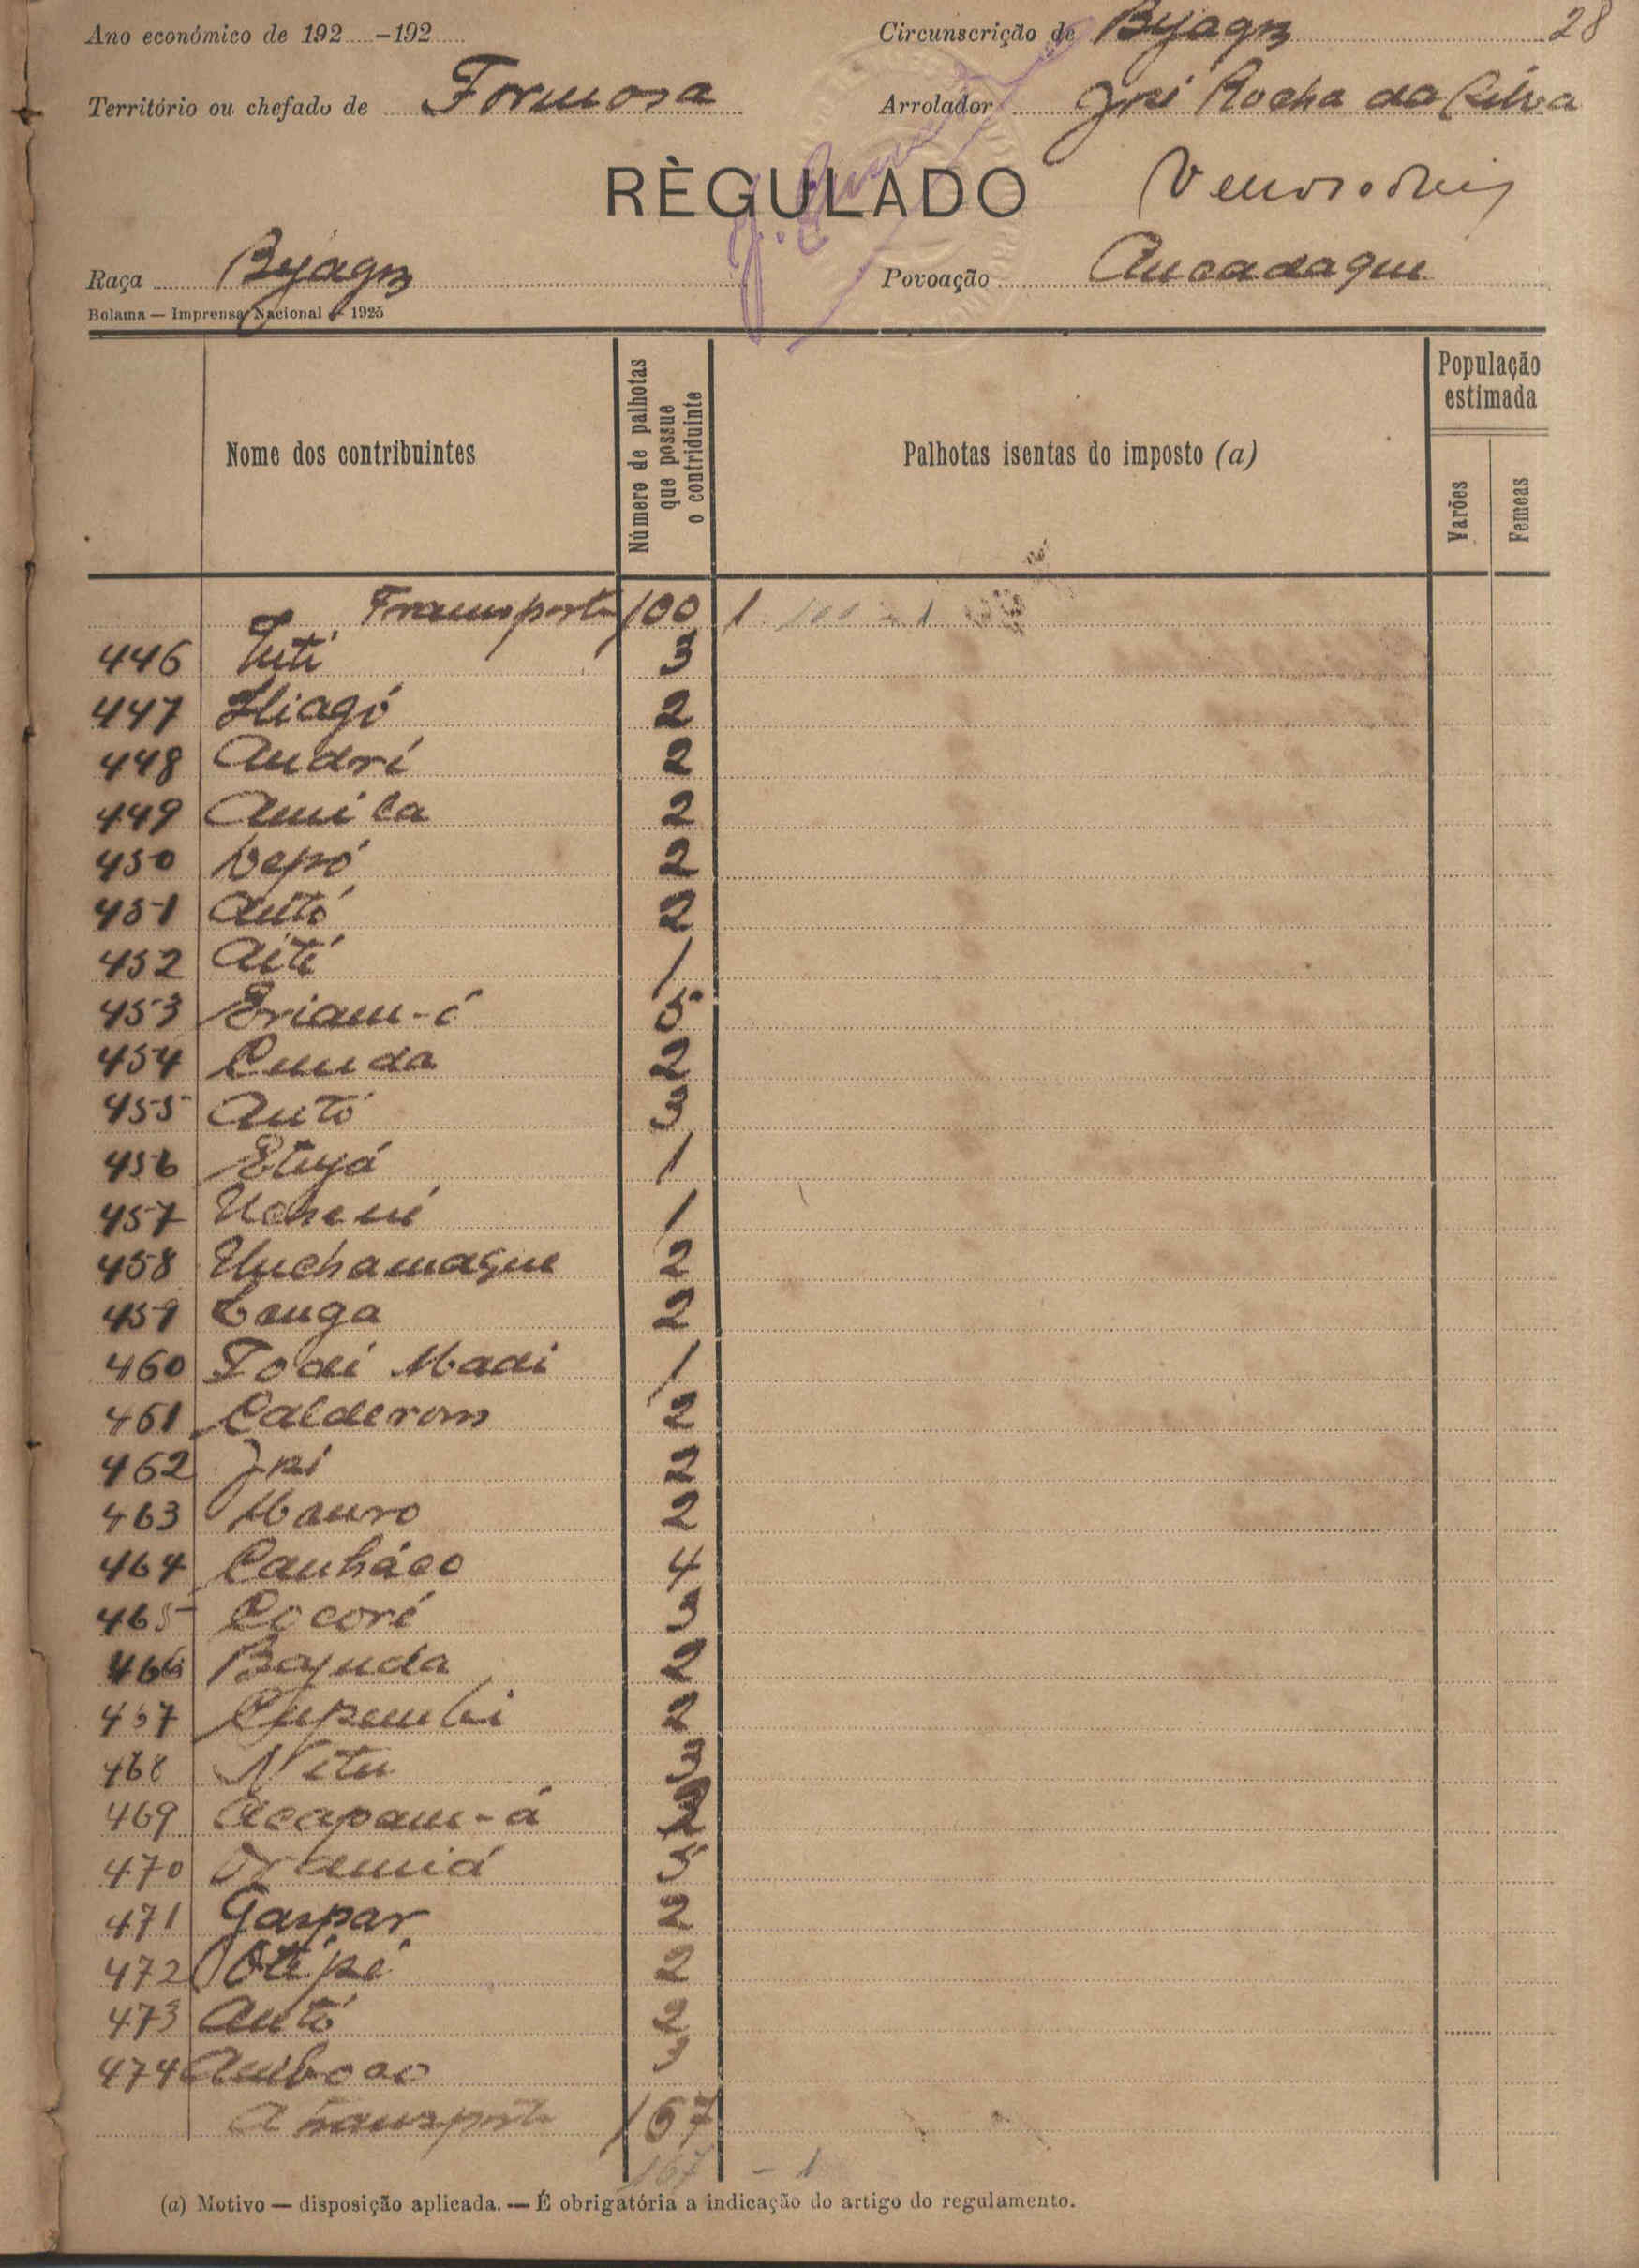 Ano económico de 192 –192
Circunscrição de Byagoz 28
Território ou chefado de Formosa
Arrolador José Rocha da Silva
RÈGULADO
Raça Byagoz
Povoação Ancadaque
Bolama — Imprensa Nacional — 1925
Nome dos contribuintes
Número de palhotas que possue o contriduinte
Palhotas isentas do imposto (a)
População estimada
Varões
Femeas
Transporte 100 1 100 - 1
446 Tuti 3
447 2
448 André 2
449 2
450 Vepó 2
451 Antó 2
452 Aité 1
453 Eriam-ó 5
454 Cunda 2
455 Antó 3
456 Etuyá 1
457 1
458 Unchamaque 2
459 Canga 2
460 Fodi Madi 1
461 Calderom 2
462 José 2
463 Mauro 2
464 Canháco 4
465 Cocoré 3
466 Bajuda 2
467 Cupumbi 2
468 Nitu 3
469 Acapam-á 2
470 5
471 Gaspar 2
472 Otépé 2
473 Antó 2
474 3
A transporte 167
167 - 1
(a) Motivo — disposição aplicada. — É obrigatória a indicação do artigo do regulamento.